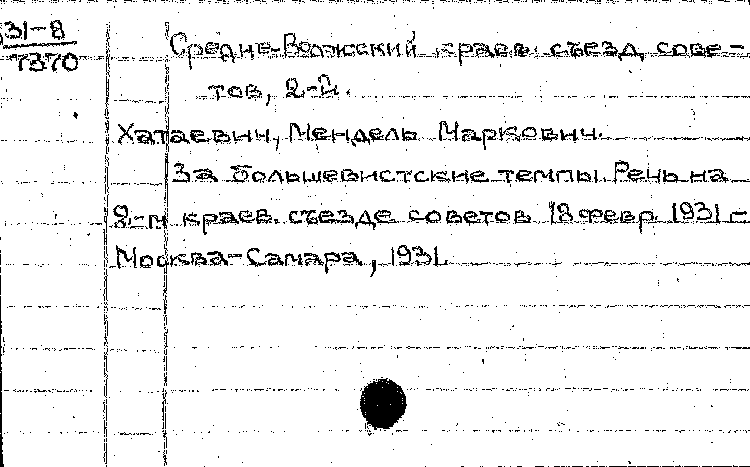 31-8
7370
Средне-Волжский краев. съезд сове-
тов, 2-й.
Хатаевич, Мендель Маркович.
За большевистские темпы. Речь на
2-м краев. съезде советов 18 февр 1931 -
Москва-Самара, 1931.